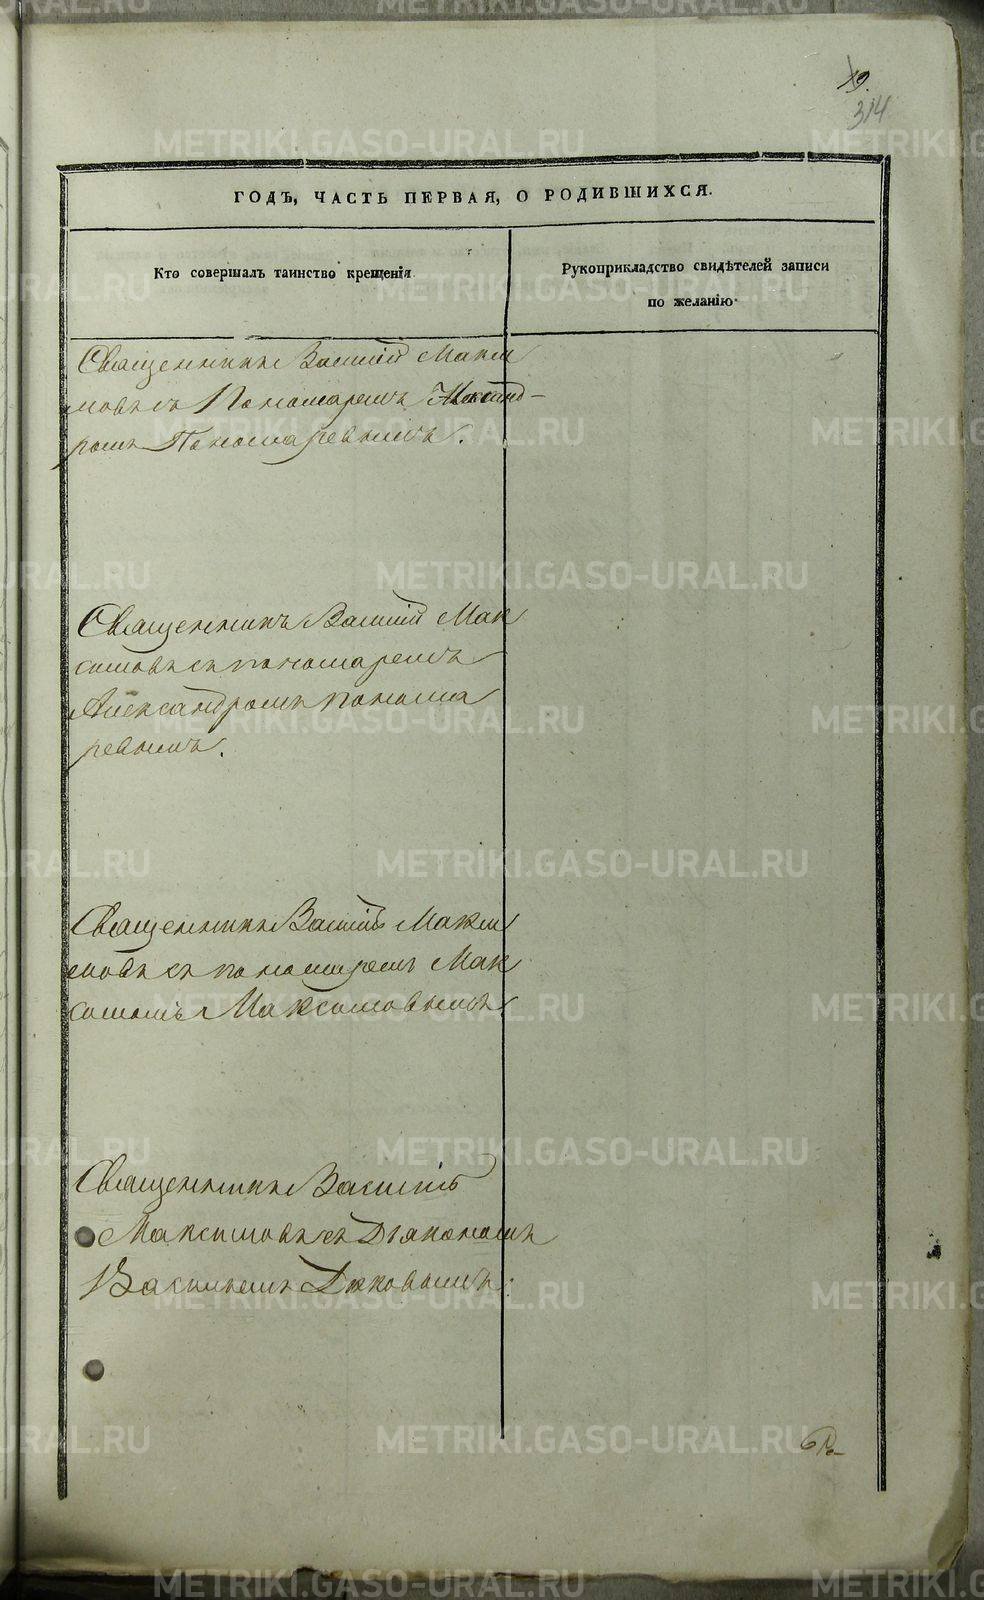 19.
314
ГОДЪ, ЧАСТЬ ПЕРВАЯ, О РОДИВШИХСЯ.
Кто совершалъ таинство крещенія
Рукоприкладство свидѣтелей записи
по желанію
Священникъ Василій Макси
мовъ съ Пономаремъ Александ-
ромъ Пономаревымъ.
Священникъ Василій Мак
симовъ съ пономаремъ
Александромъ Понома
ревымъ.
Священникъ Василій Макси
мовъ съ пономаремъ Мак
симомъ Максимовымъ
Священникъ Василій
Максимовъ съ Діакономъ
Васильемъ
METRIKI.GASO-URAL.RU